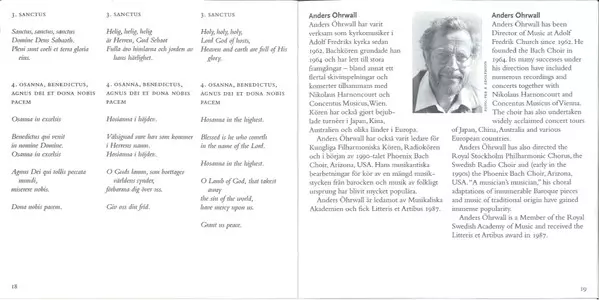 3. SANCTUS
Sanctus, sanctus, sanctus
Domine Deus Sabaoth.
Pleni sunt coeli et terra gloria
eius.
4. OSANNA, BENEDICTUS,
AGNUS DEI ET DONA NOBIS
PACEM
Osanna in excelsis
Benedictus qui venit
in nomine Domine.
Osanna in excelsis
Agnus Dei qui tollis peccata
mundi,
miserere nobis.
Dona nobis pacem.
3. SANCTUS
Helig, helig, helig
är Herren, Gud Sebaot
Fulla äro himlarna och jorden av
hans härlighet.
4. OSANNA, BENEDICTUS,
AGNUS DEI ET DONA NOBIS
PACEM
Hosianna i höjden.
Välsignad vare han som kommer
i Herrens namn.
Hosianna i höjden.
O Guds lamm, som borttager
världens synder,
förbarma dig över oss.
Giv oss din frid.
3. SANCTUS
Holy, holy, holy,
Lord God of hosts,
Heaven and earth are full of His
glory.
4. OSANNA, BENEDICTUS,
AGNUS DEI ET DONA NOBIS
PACEM
Hosanna in the highest.
Blessed is he who cometh
in the name of the Lord.
Hosanna in the highest.
O Lamb of God, that takest
away
the sin of the world,
have mercy upon us.
Grant us peace.
18
Anders Öhrwall
Anders Öhrwall har varit
verksam som kyrkomusiker i
Adolf Fredriks kyrka sedan
1962. Bachkören grundade han
1964 och har lett till stora
framgångar – bland annat ett
flertal skivinspelningar och
konserter tillsammans med
Nikolaus Harnoncourt och
Concentus Musicus, Wien.
Kören har också gjort bejub-
lade turnéer i Japan, Kina,
Australien och olika länder i Europa.
Anders Öhrwall har också varit ledare för
Kungliga Filharmoniska Kören, Radiokören
och i början av 1990-talet Phoenix Bach
Choir, Arizona, USA. Hans musikantiska
bearbetningar för kör av en mängd musik-
stycken från barocken och musik av folkligt
ursprung har blivit mycket populära.
Anders Öhrwall är ledamot av Musikaliska
Akademien och fick Litteris et Artibus 1987.
Anders Öhrwall
Anders Öhrwall has been
Director of Music at Adolf
Fredrik Church since 1962. He
founded the Bach Choir in
1964. Its many successes under
his direction have included
numerous recordings and
concerts together with
Nikolaus Harnoncourt and
Concentus Musicus of Vienna.
The choir has also undertaken
widely acclaimed concert tours
of Japan, China, Australia and various
European countries.
Anders Öhrwall has also directed the
Royal Stockholm Philharmonic Chorus, the
Swedish Radio Choir and (early in the
1990s) the Phoenix Bach Choir, Arizona,
USA. “A musician’s musician,” his choral
adaptations of innumerable Baroque pieces
and music of traditional origin have gained
immense popularity.
Anders Öhrwall is a Member of the Royal
Swedish Academy of Music and received the
Litteris et Artibus award in 1987.
19